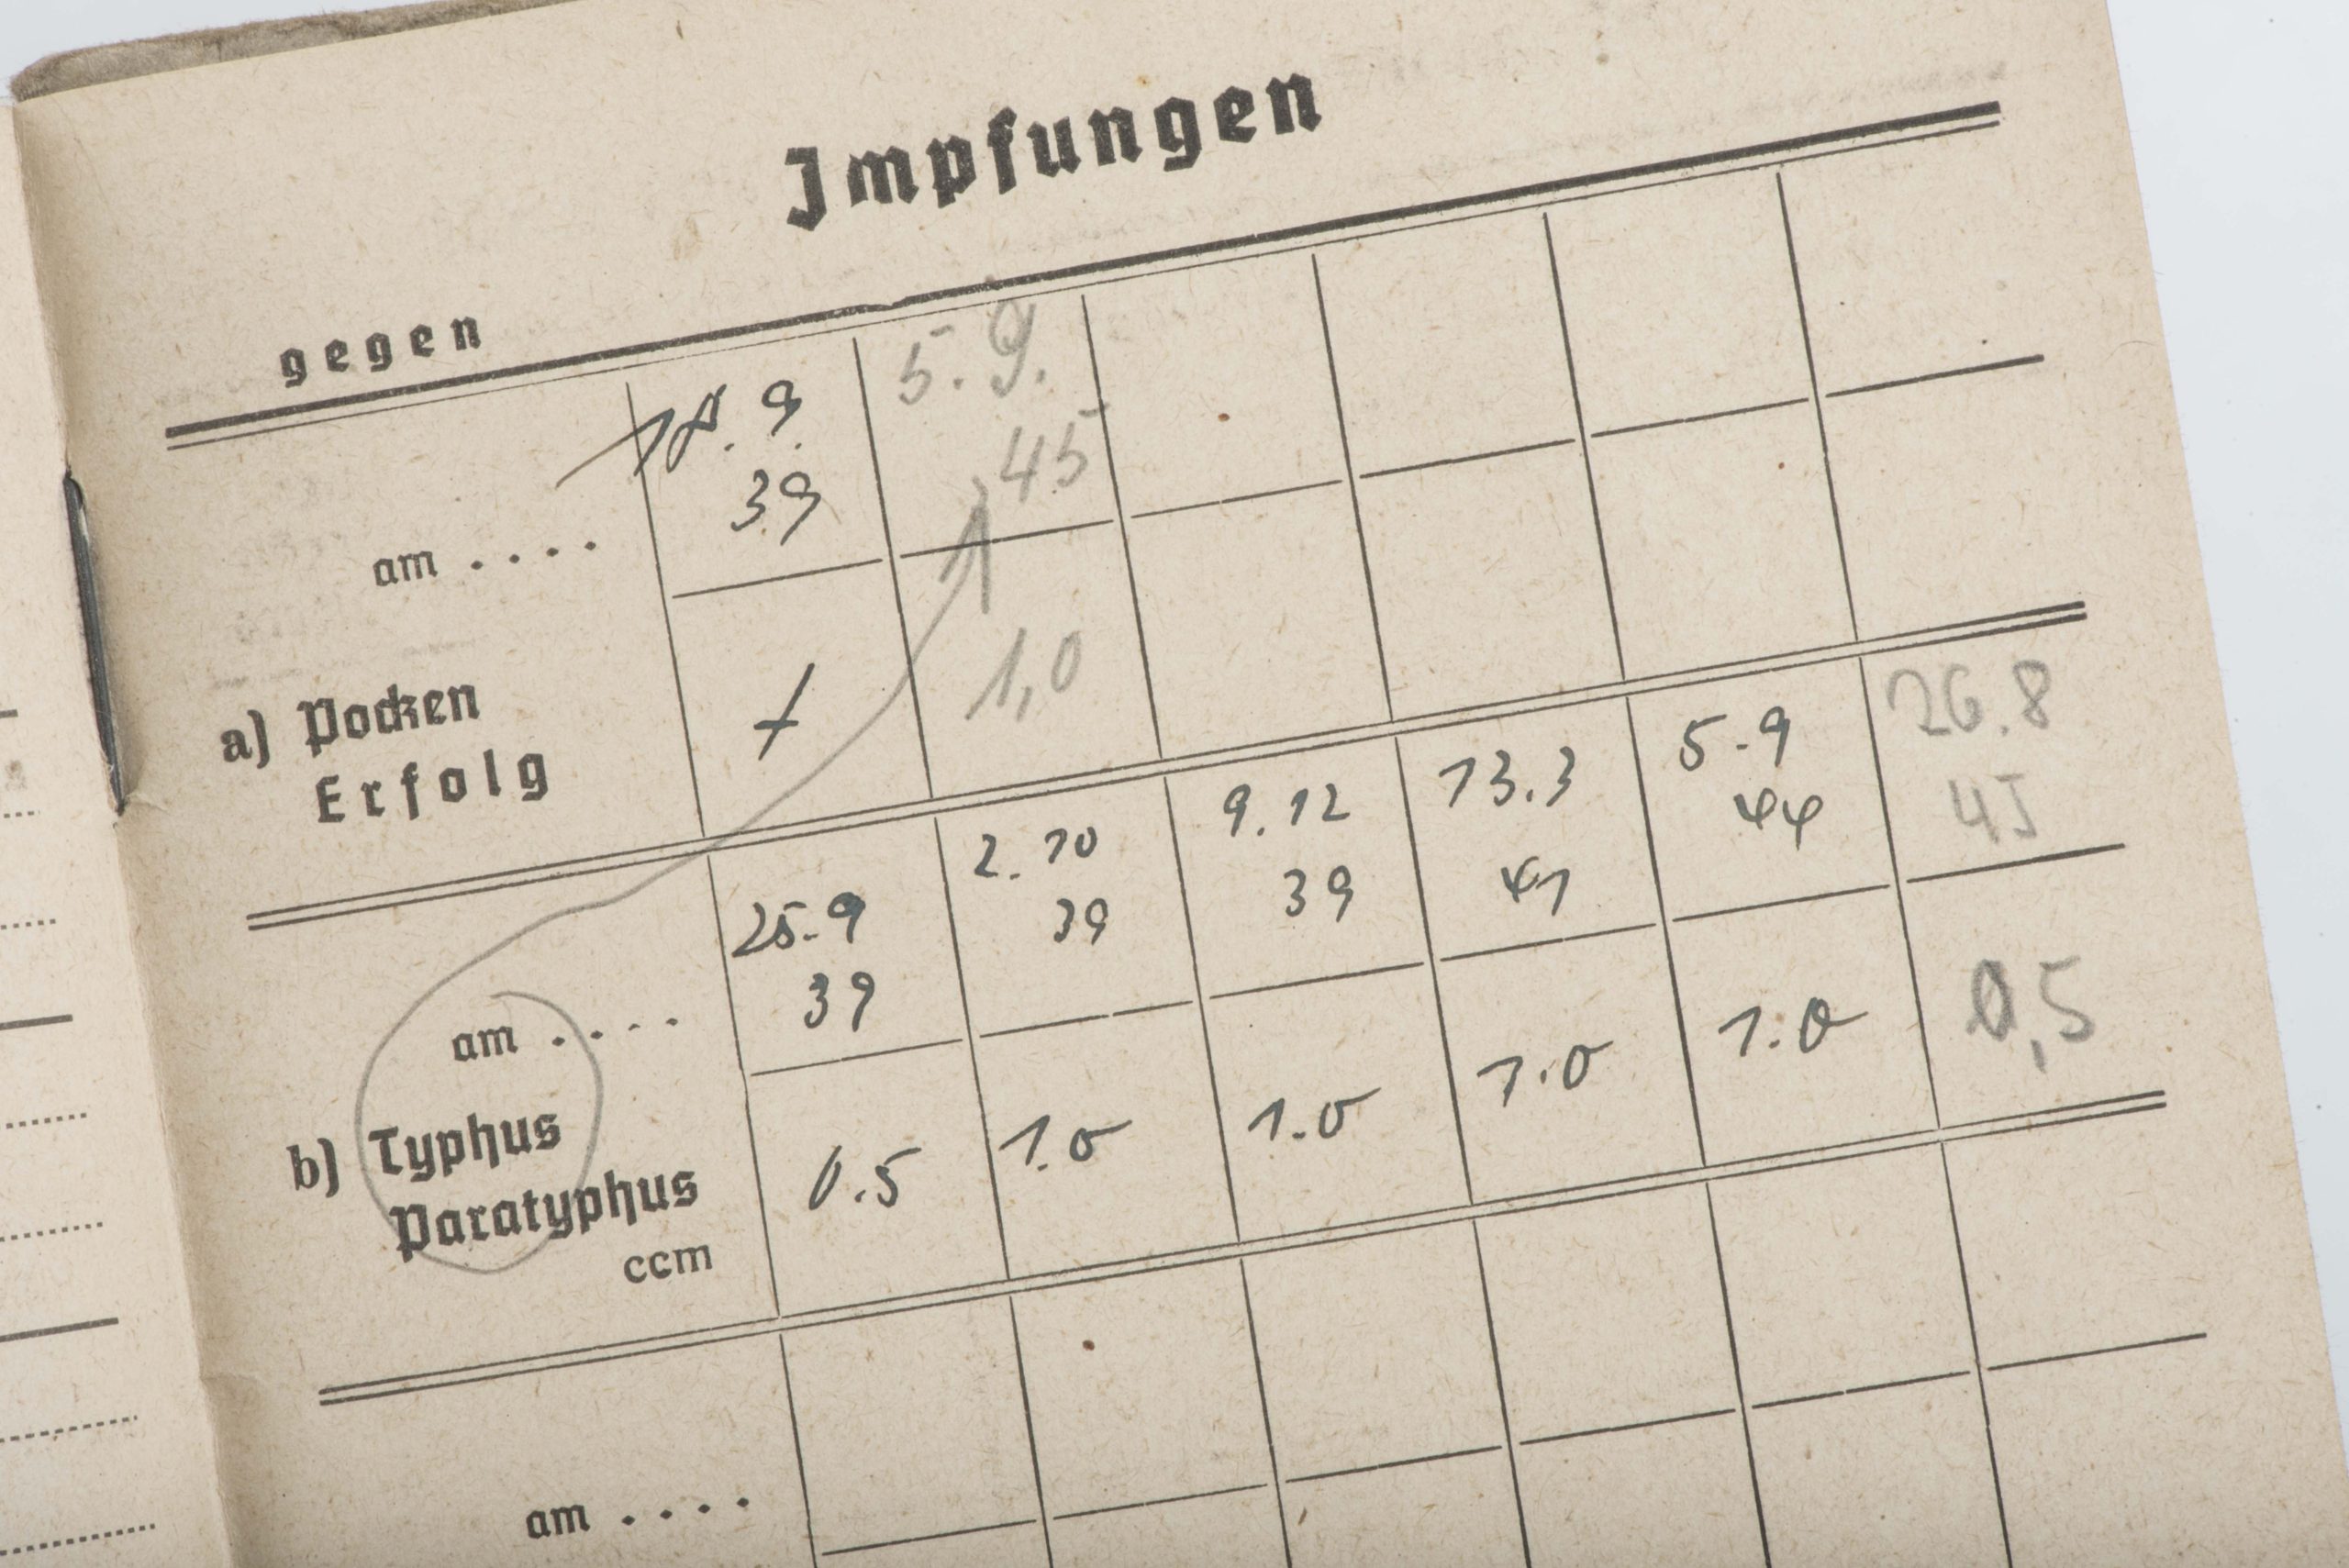 Impfungen
gegen
am . . . .
18. 9.
39
5. 9.
45
a) Pocken
Erfolg
+
1,0
am . . . .
25.9
39
2. 10
39
9. 12
39
13.3
41
5.9
44
26.8
45
b) Typhus
Paratyphus
ccm
0.5
1.0
1.0
1.0
1.0
0,5
am . . . .